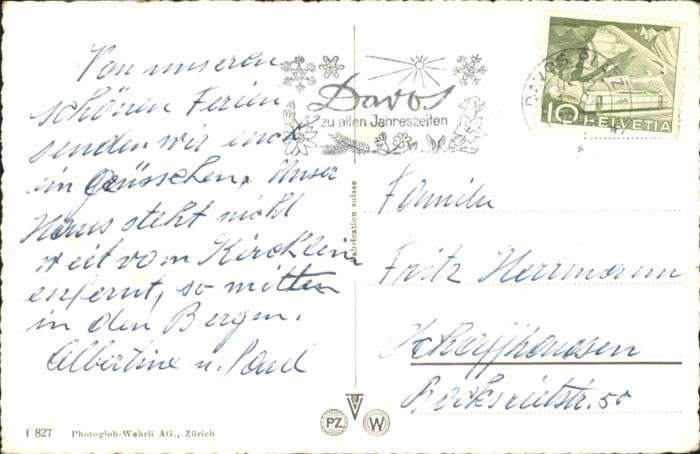 Von unseren
schönen Ferien
senden wir euch
ein Grüsschen, Unser
Haus steht nicht
weit vom Kirchlein
enfernt, so mitten
in den Bergen.
Albertine u. Paul
Davos
zu allen Jahreszeiten
DAVOS PLATZ
10 HELVETIA
Fabrication suisse
Familie
Fritz Herrmann
Schaffhausen
50
PZ W
f 827 Photoglob-Wehrli AG., Zürich